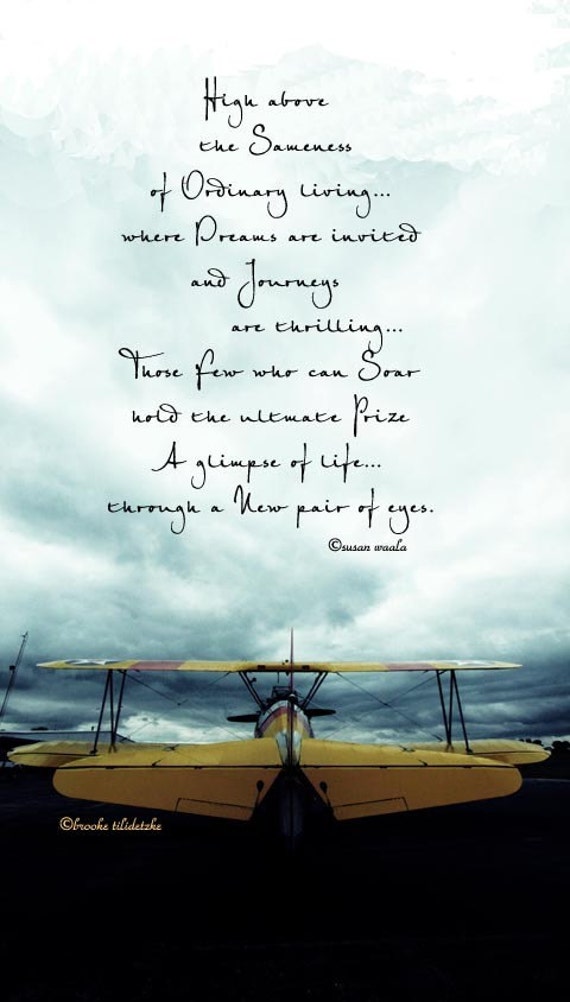 High above
the Sameness
of Ordinary living...
where Dreams are invited
and Journeys
are thrilling...
Those few who can Soar
hold the ultmate Prize
A glimpse of life...
through a New pair of eyes.
©susan waala
©brooke tilidetzke